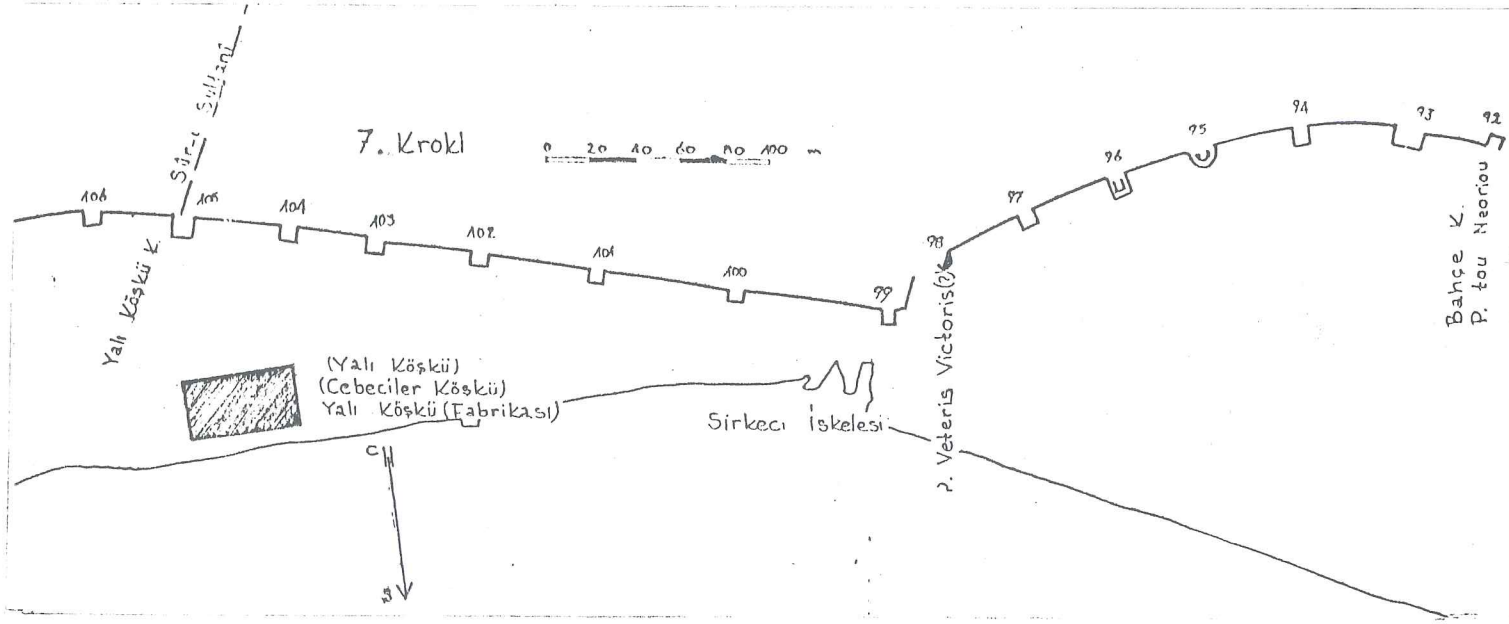 Sûr-ı Sultanî
7. Kroki
0 20 40 60 80 100 m
106
105
104
103
102
101
100
99
98
97
96
95
94
93
92
Yalı Köşkü K.
(Yalı Köşkü)
(Cebeciler Köşkü)
Yalı Köşkü (Fabrikası)
Sirkeci İskelesi
P. Veteris Victoris(?)
Bahçe K.
P. tou Neoriou
C